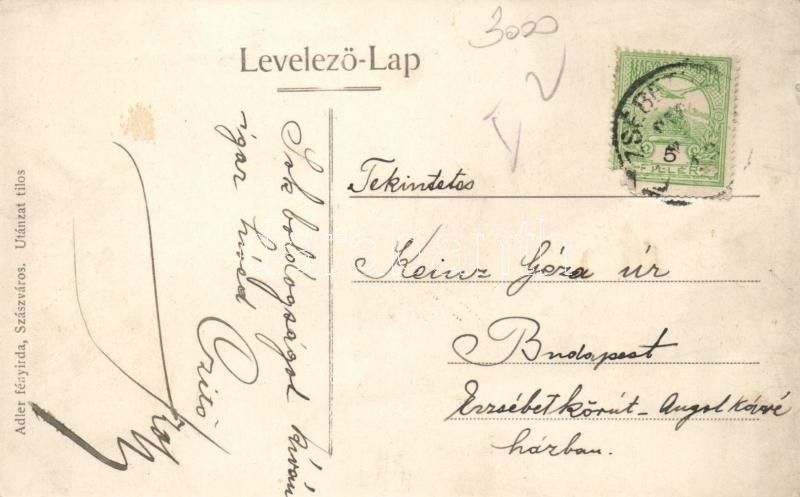 3000
Levelező-Lap
Tekintetes
Keinz Géza úr
Budapest
Erzsébetkörút - Angol kávé
házban.
Sok boldogságot kíván
igaz hived
Adler fényirda, Szászváros. Utánzat tilos
MAGYAR
5
FILLÉR